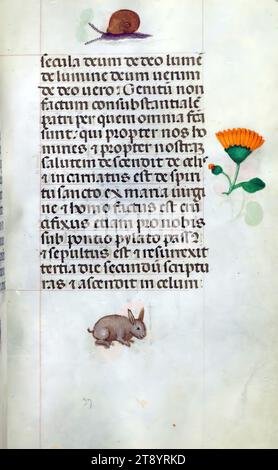 secula deum de deo lume
de lumine deum uerum
de deo uero: Genitu non
factum consubstantiale
patri per quem omnia fca
sunt: qui propter nos ho
mines & propter nostrã
salutem descendit de celis
& incarnatus est de spiri
tu sancto ex maria uirgi
ne & homo factus est cru
cifixus etiam pro nobis
sub pontio pylato passꝰ
& sepultus est & resurrexit
tertia die secundũ scriptu
ras & ascendit in celum:
alamy
Image ID: 2T8YRKD
www.alamy.com